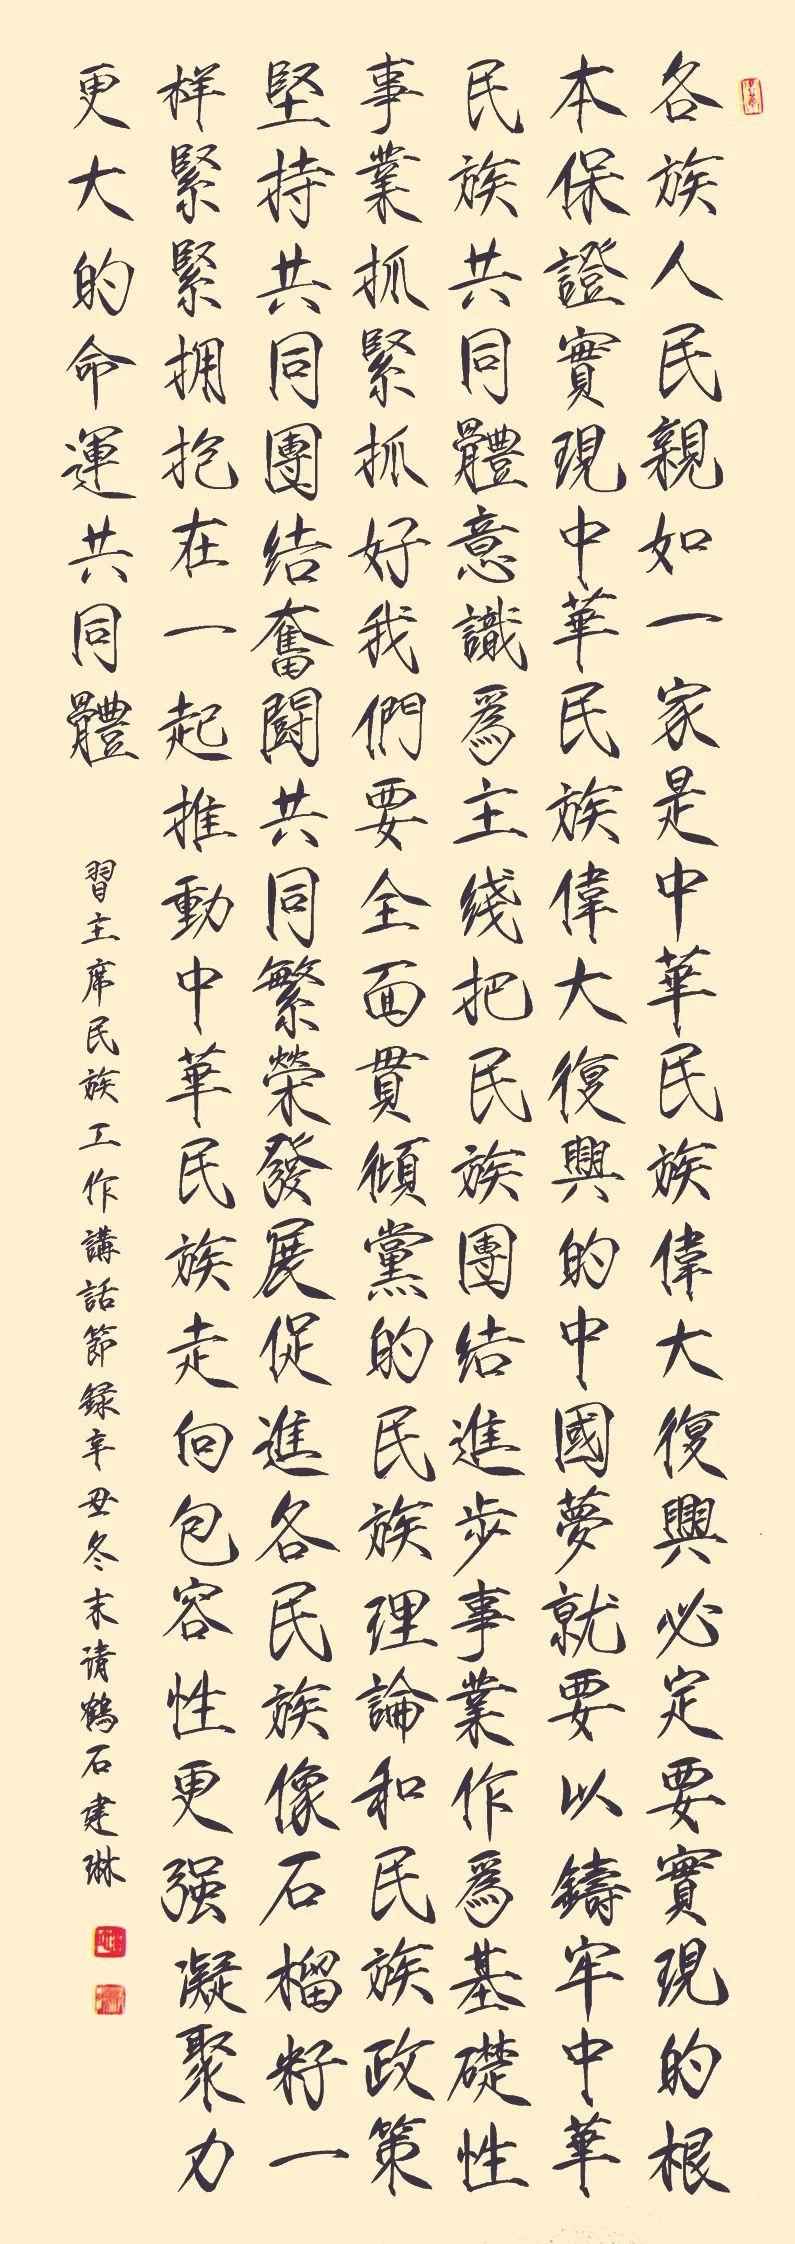 各族人民親如一家是中華民族偉大復興必定要實現的根
本保證實現中華民族偉大復興的中國夢就要以鑄牢中華
民族共同體意識爲主綫把民族團結進步事業作爲基礎性
事業抓緊抓好我們要全面貫黨的民族理論和民族政策
堅持共同團結奮鬪共同繁榮發展促進各民族像石榴籽一
样緊緊拥抱在一起推動中華民族走向包容性更强凝聚力
更大的命運共同體
習主席民族工作講話節録辛丑冬末鶴石建琳